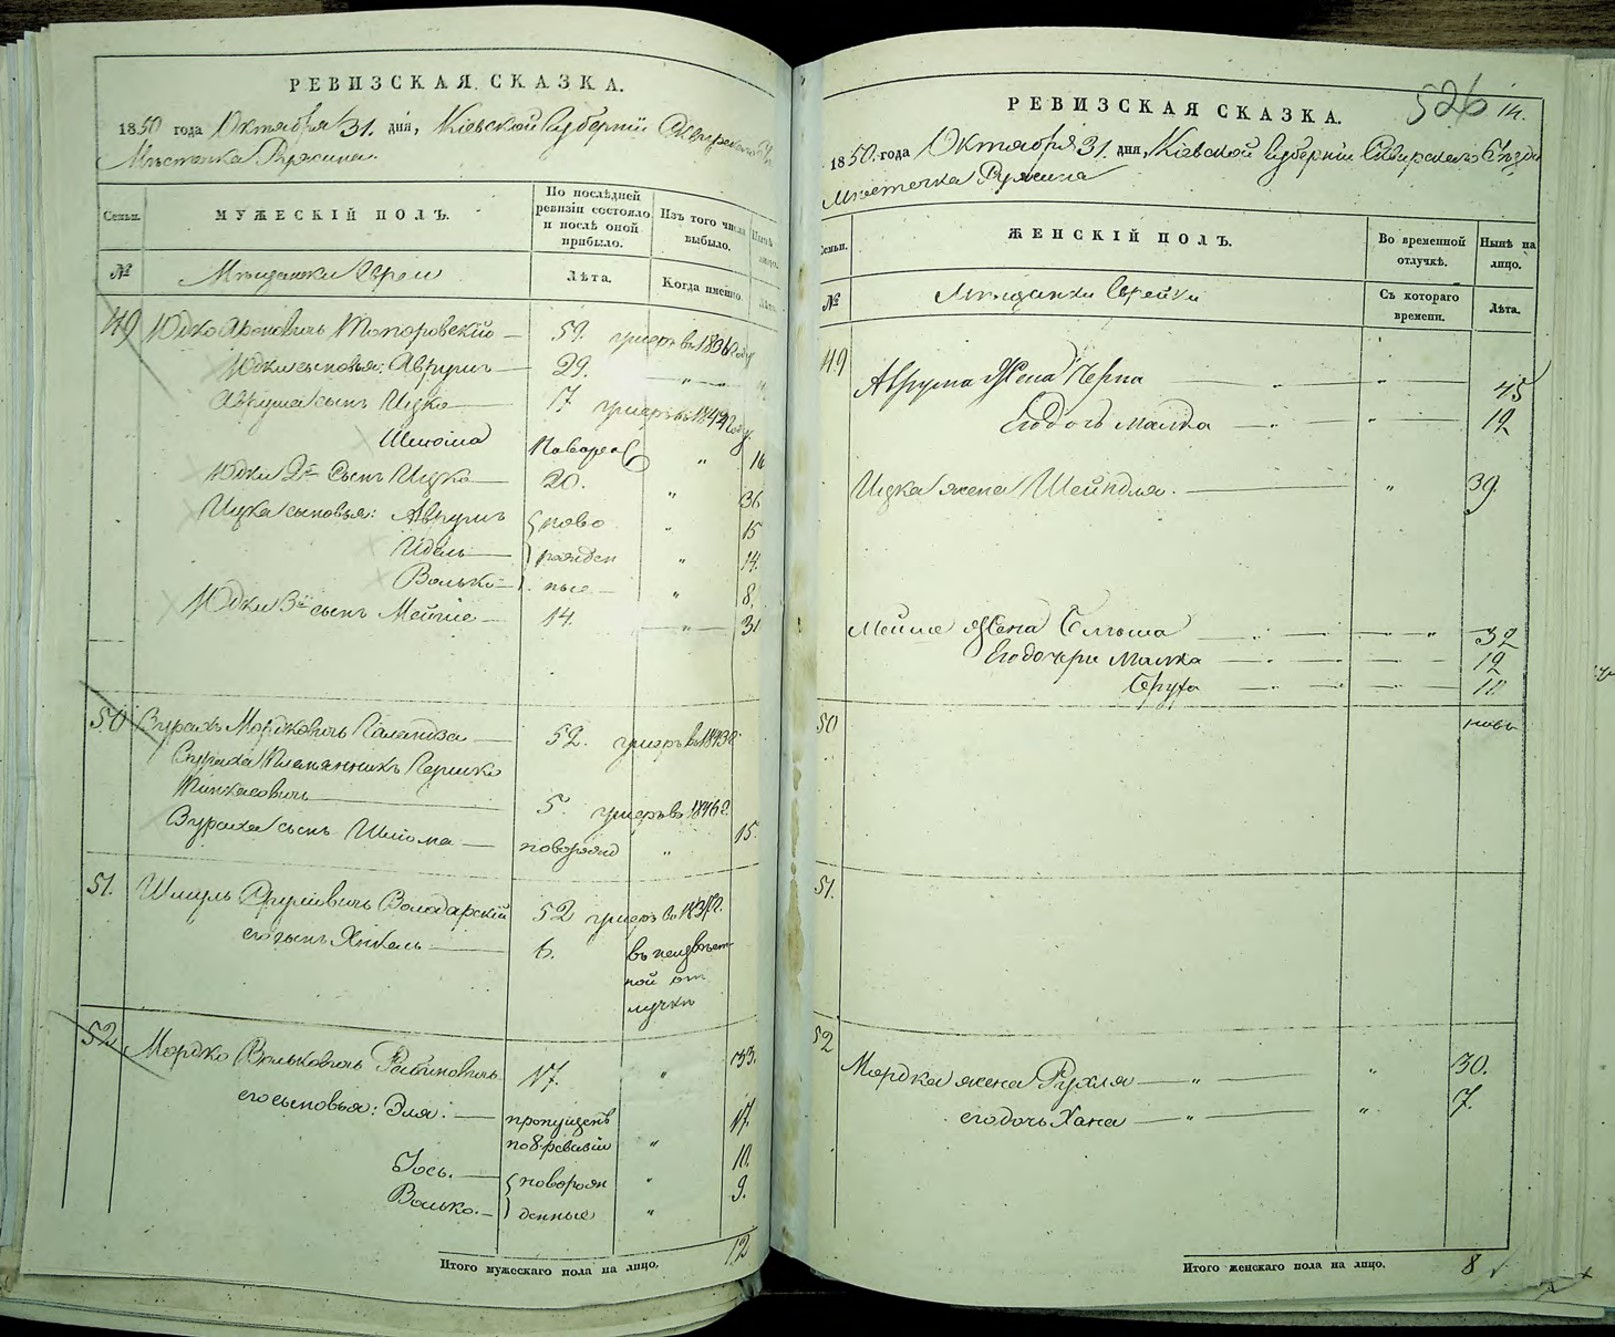 РЕВИЗСКАЯ СКАЗКА.
1850 года Октября 31. дня, Кіевской Губерніи Сквирскаго
Мѣстечка Ружина.
Семьи.
МУЖЕСКІЙ ПОЛЪ.
По послѣдней ревизіи состояло и послѣ оной прибыло.
Изъ того числа выбыло.
№
Мѣщански Евреи
Лѣта.
Когда именно.
49 Юдко Ароновичь Топоровскій — 59. умеръ въ 1836 году
Юдки сыновья: Аврумъ — 29. — „ —
Аврума сынъ Ицко — 17 умеръ въ 1844 году.
Шлиома новорож „ 16
Юдки 2й Сынъ Ицко — 20. „ 36
Ицка сыновья: Аврумъ { ново „ 15
Идель — } рожден „ 14.
Волько — } ные — „ 8.
Юдки 3й сынъ Мейше — 14. — „ — 31
50 Бурахъ Мордковичь — 52. умеръ въ 1843 г.
Бураха Племянникъ Гершко
Пинхасовичь — 5. умеръ въ 1846 г.
Бураха сынъ Шлиома — новорожд „ 15.
51. Шмуль Фроимовичь Володарскій 52 умеръ въ
его сынъ Янкель — 6. въ неизвѣст
ной от
лучкѣ
52 Мордко Вольковичь Рабиновичь 17. „ 33.
его сыновья: Эля. — пропущенъ 17.
по 8 ревизіи „
Іось. — { новорож „ 10.
Волько. — } денные „ 9.
Итого мужескаго пола на лицо. 12
526 14.
РЕВИЗСКАЯ СКАЗКА.
1850. года Октября 31. дня, Кіевской Губерніи Сквирскаго Уѣзда
Мѣстечка Ружина
Семьи.
ЖЕНСКІЙ ПОЛЪ.
Во временной отлучкѣ.
Нынѣ на лицо.
№
Мѣщанки Еврейки
Съ котораго времени.
Лѣта.
49 Аврума Жена Перпа — „ — „ — 45
Его дочь Малка — „ — „ — 12
Ицка жена Шейндля. — „ 39.
Мейше Жена — „ — „ 32
Его дочери Малка — „ — 12
Беруха — „ — 10
50
51.
52
Мордка жена Рухля — „ — „ 30.
его дочь Хана — „ — „ 7.
Итого женскаго пола на лицо. 8